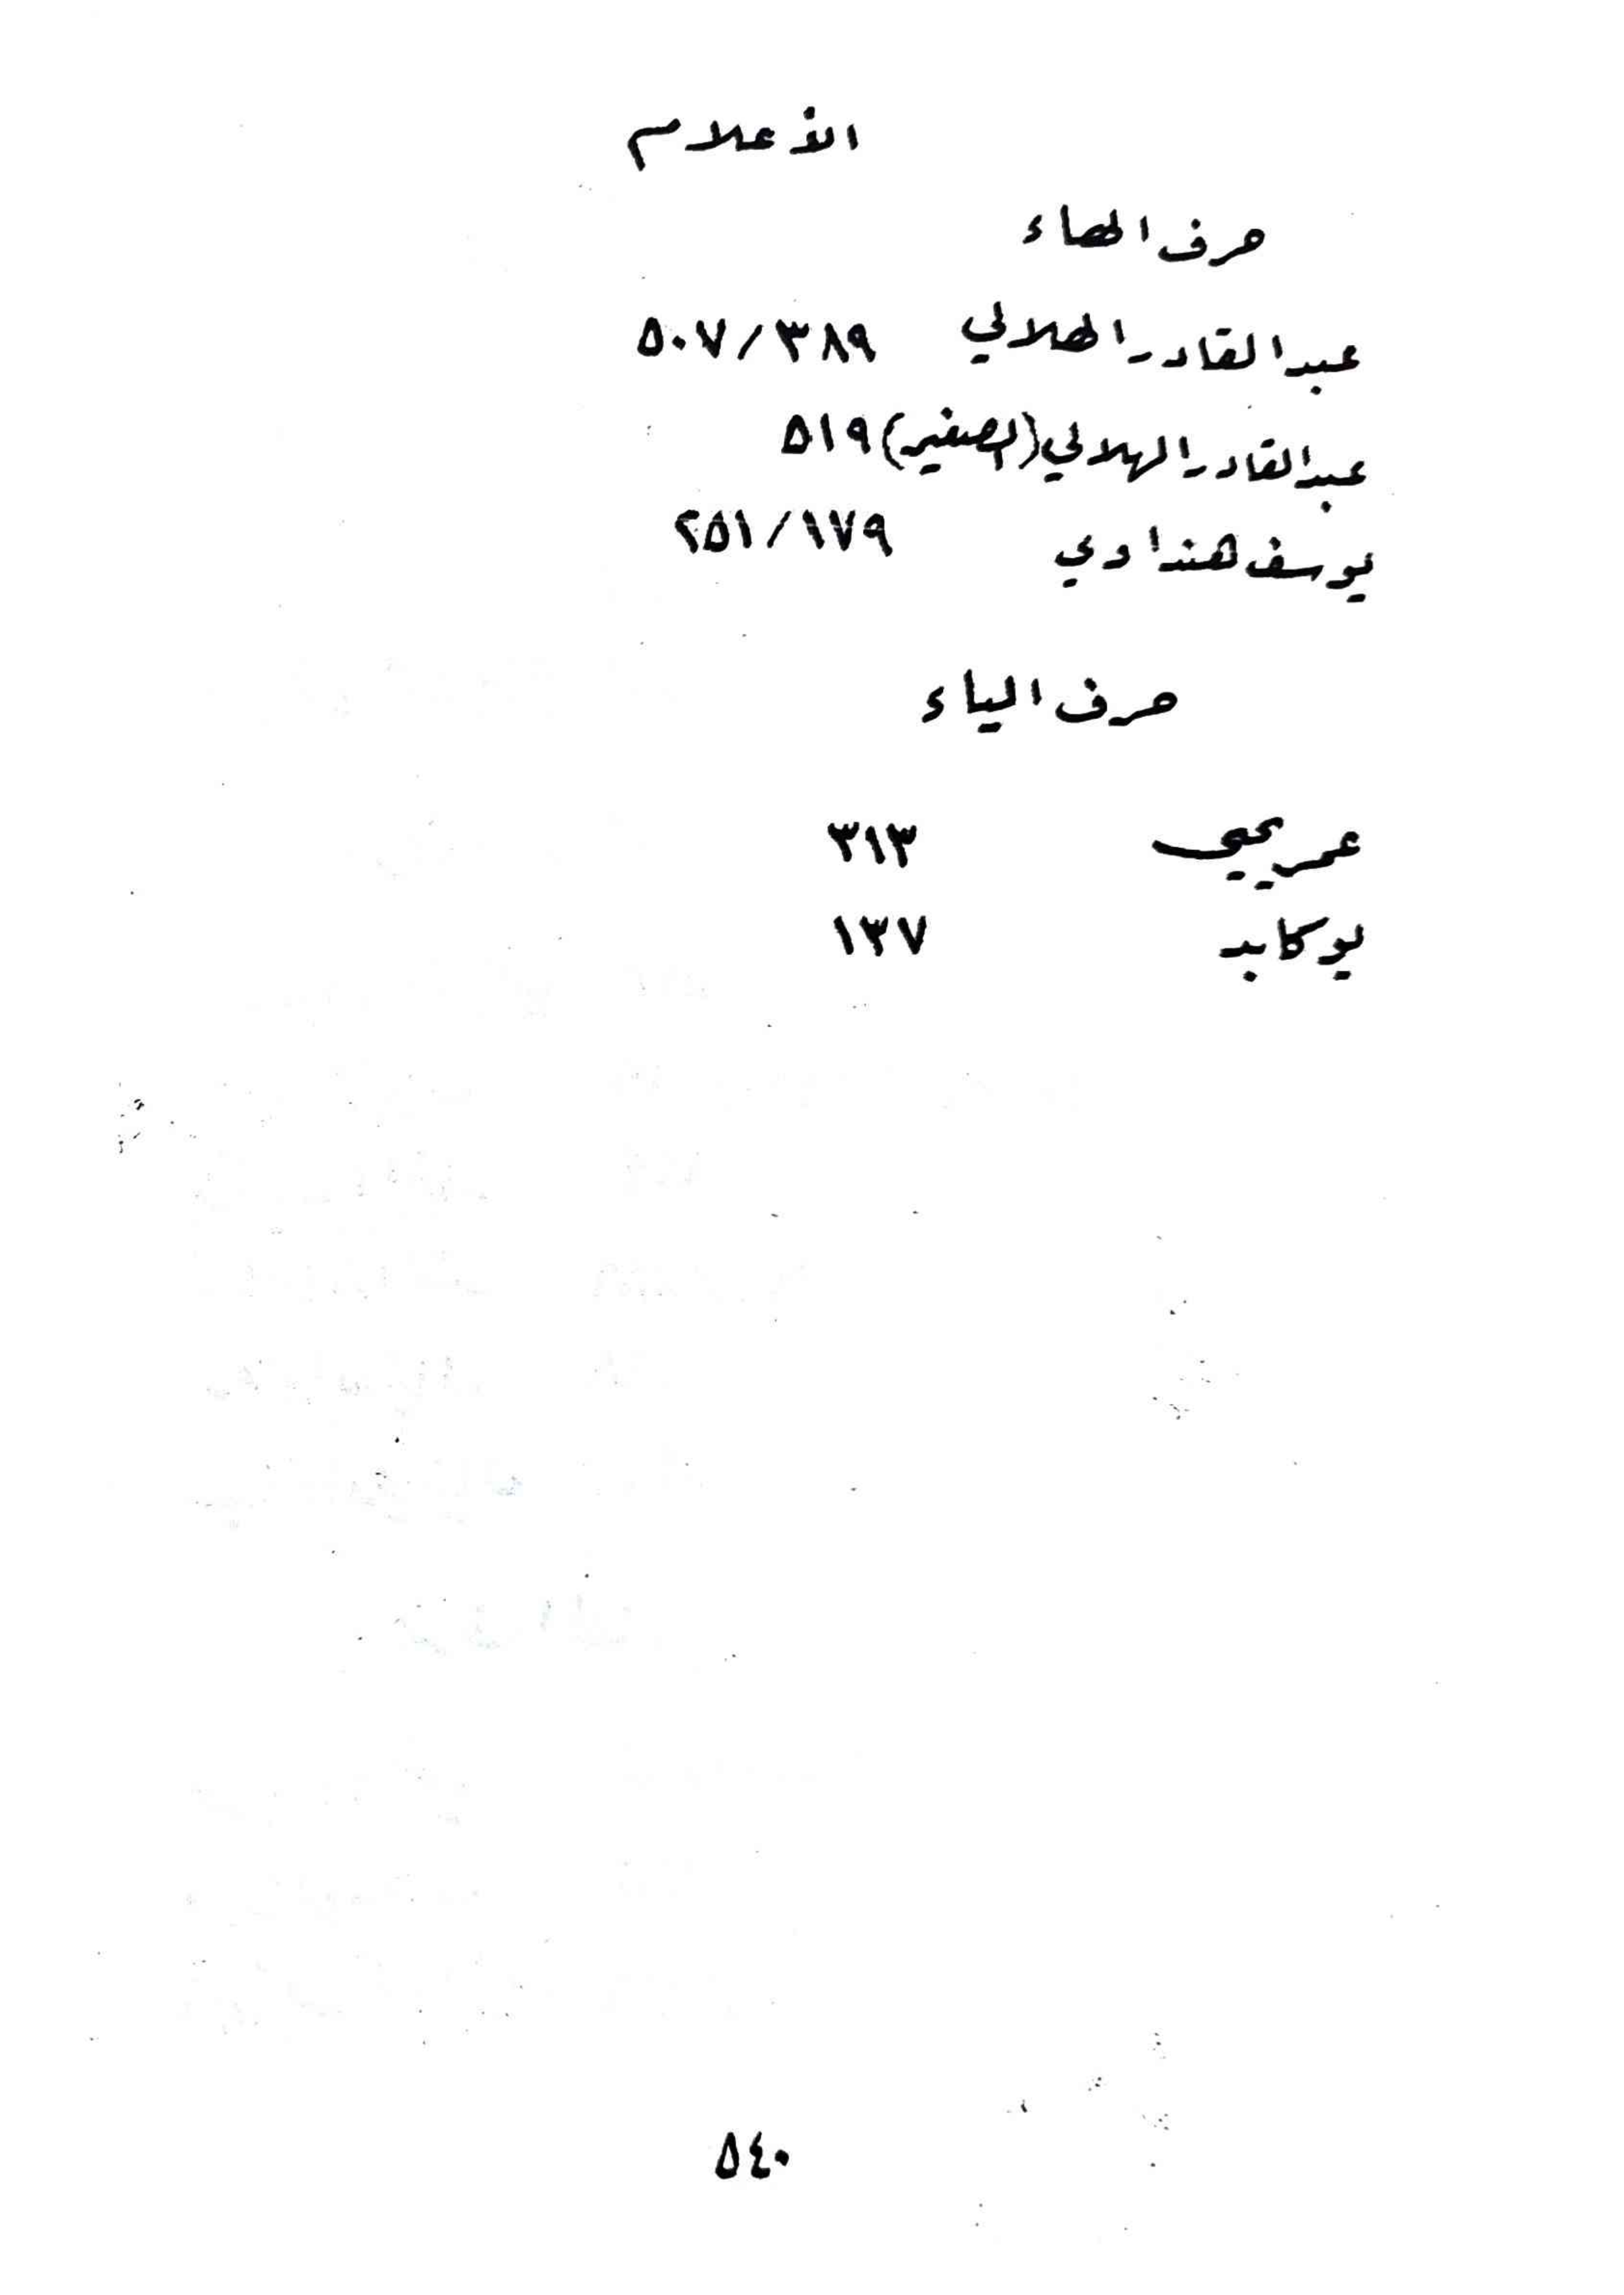 الأعلام
حرف الهاء
عبد القادر الهلالي ٥٠٧/٣٨٩
عبد القادر الهلالي (الصغير) ٥١٩
يوسف هنداوي ٢٥١/١٧٩
حرف الياء
عمر يحيى ٣١٣
يوكابد ١٣٧
٥٤٠